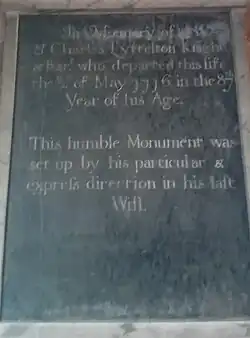 In Memory of
Charles Lyttelton Knight
& Bart who departed this life
the 2d of May 1716 in the 87th
Year of his Age.
This humble Monument was
set up by his particular &
expreſs direction in his laſt
Will.